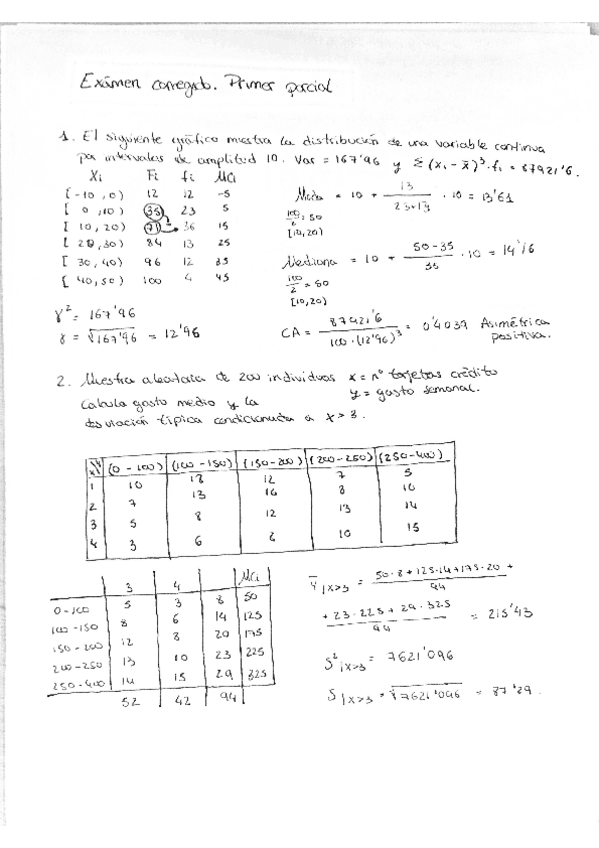 Exámen corregido. Primer parcial
1. El siguiente gráfico muestra la distribución de una variable continua
por intervalos de amplitud 10. Var = 167'96 y Σ (xi - x̄)³ · fi = 87921'6.
Xi Fi fi Mci
[-10, 0) 12 12 -5
[ 0, 10) 35 23 5
[ 10, 20) 71 36 15
[ 20, 30) 84 13 25
[ 30, 40) 96 12 35
[ 40, 50) 100 4 45
Moda = 10 + 13 / 23+13 · 10 = 13'61
100/2 = 50
[10,20)
Mediana = 10 + 50-35 / 35 · 10 = 14'16
100/2 = 50
[10,20)
γ² = 167'96
γ = √167'96 = 12'96
CA = 87921'6 / 100·(12'96)³ = 0'4039 Asimétrica
positiva.
2. Muestra aleatoria de 200 individuos x = nº tarjetas crédito
y = gasto semanal.
Calcula gasto medio y la
desviación típica condicionada a x > 3.
X Y (0 - 100) (100 - 150) (150-200) (200-250) (250-400)
1 10 18 12 7 5
2 7 13 16 8 10
3 5 8 12 13 14
4 3 6 8 10 15
3 4 Mci
0-100 5 3 8 50
100-150 8 6 14 125
150-200 12 8 20 175
200-250 13 10 23 225
250-400 14 15 29 325
52 42 94
Ȳ|x>3 = 50·8+125·14+175·20+ / 94
+23·225+29·325 / 94 = 215'43
S²|x>3 = 7621'096
S|x>3 = √7621'096 = 87'29.